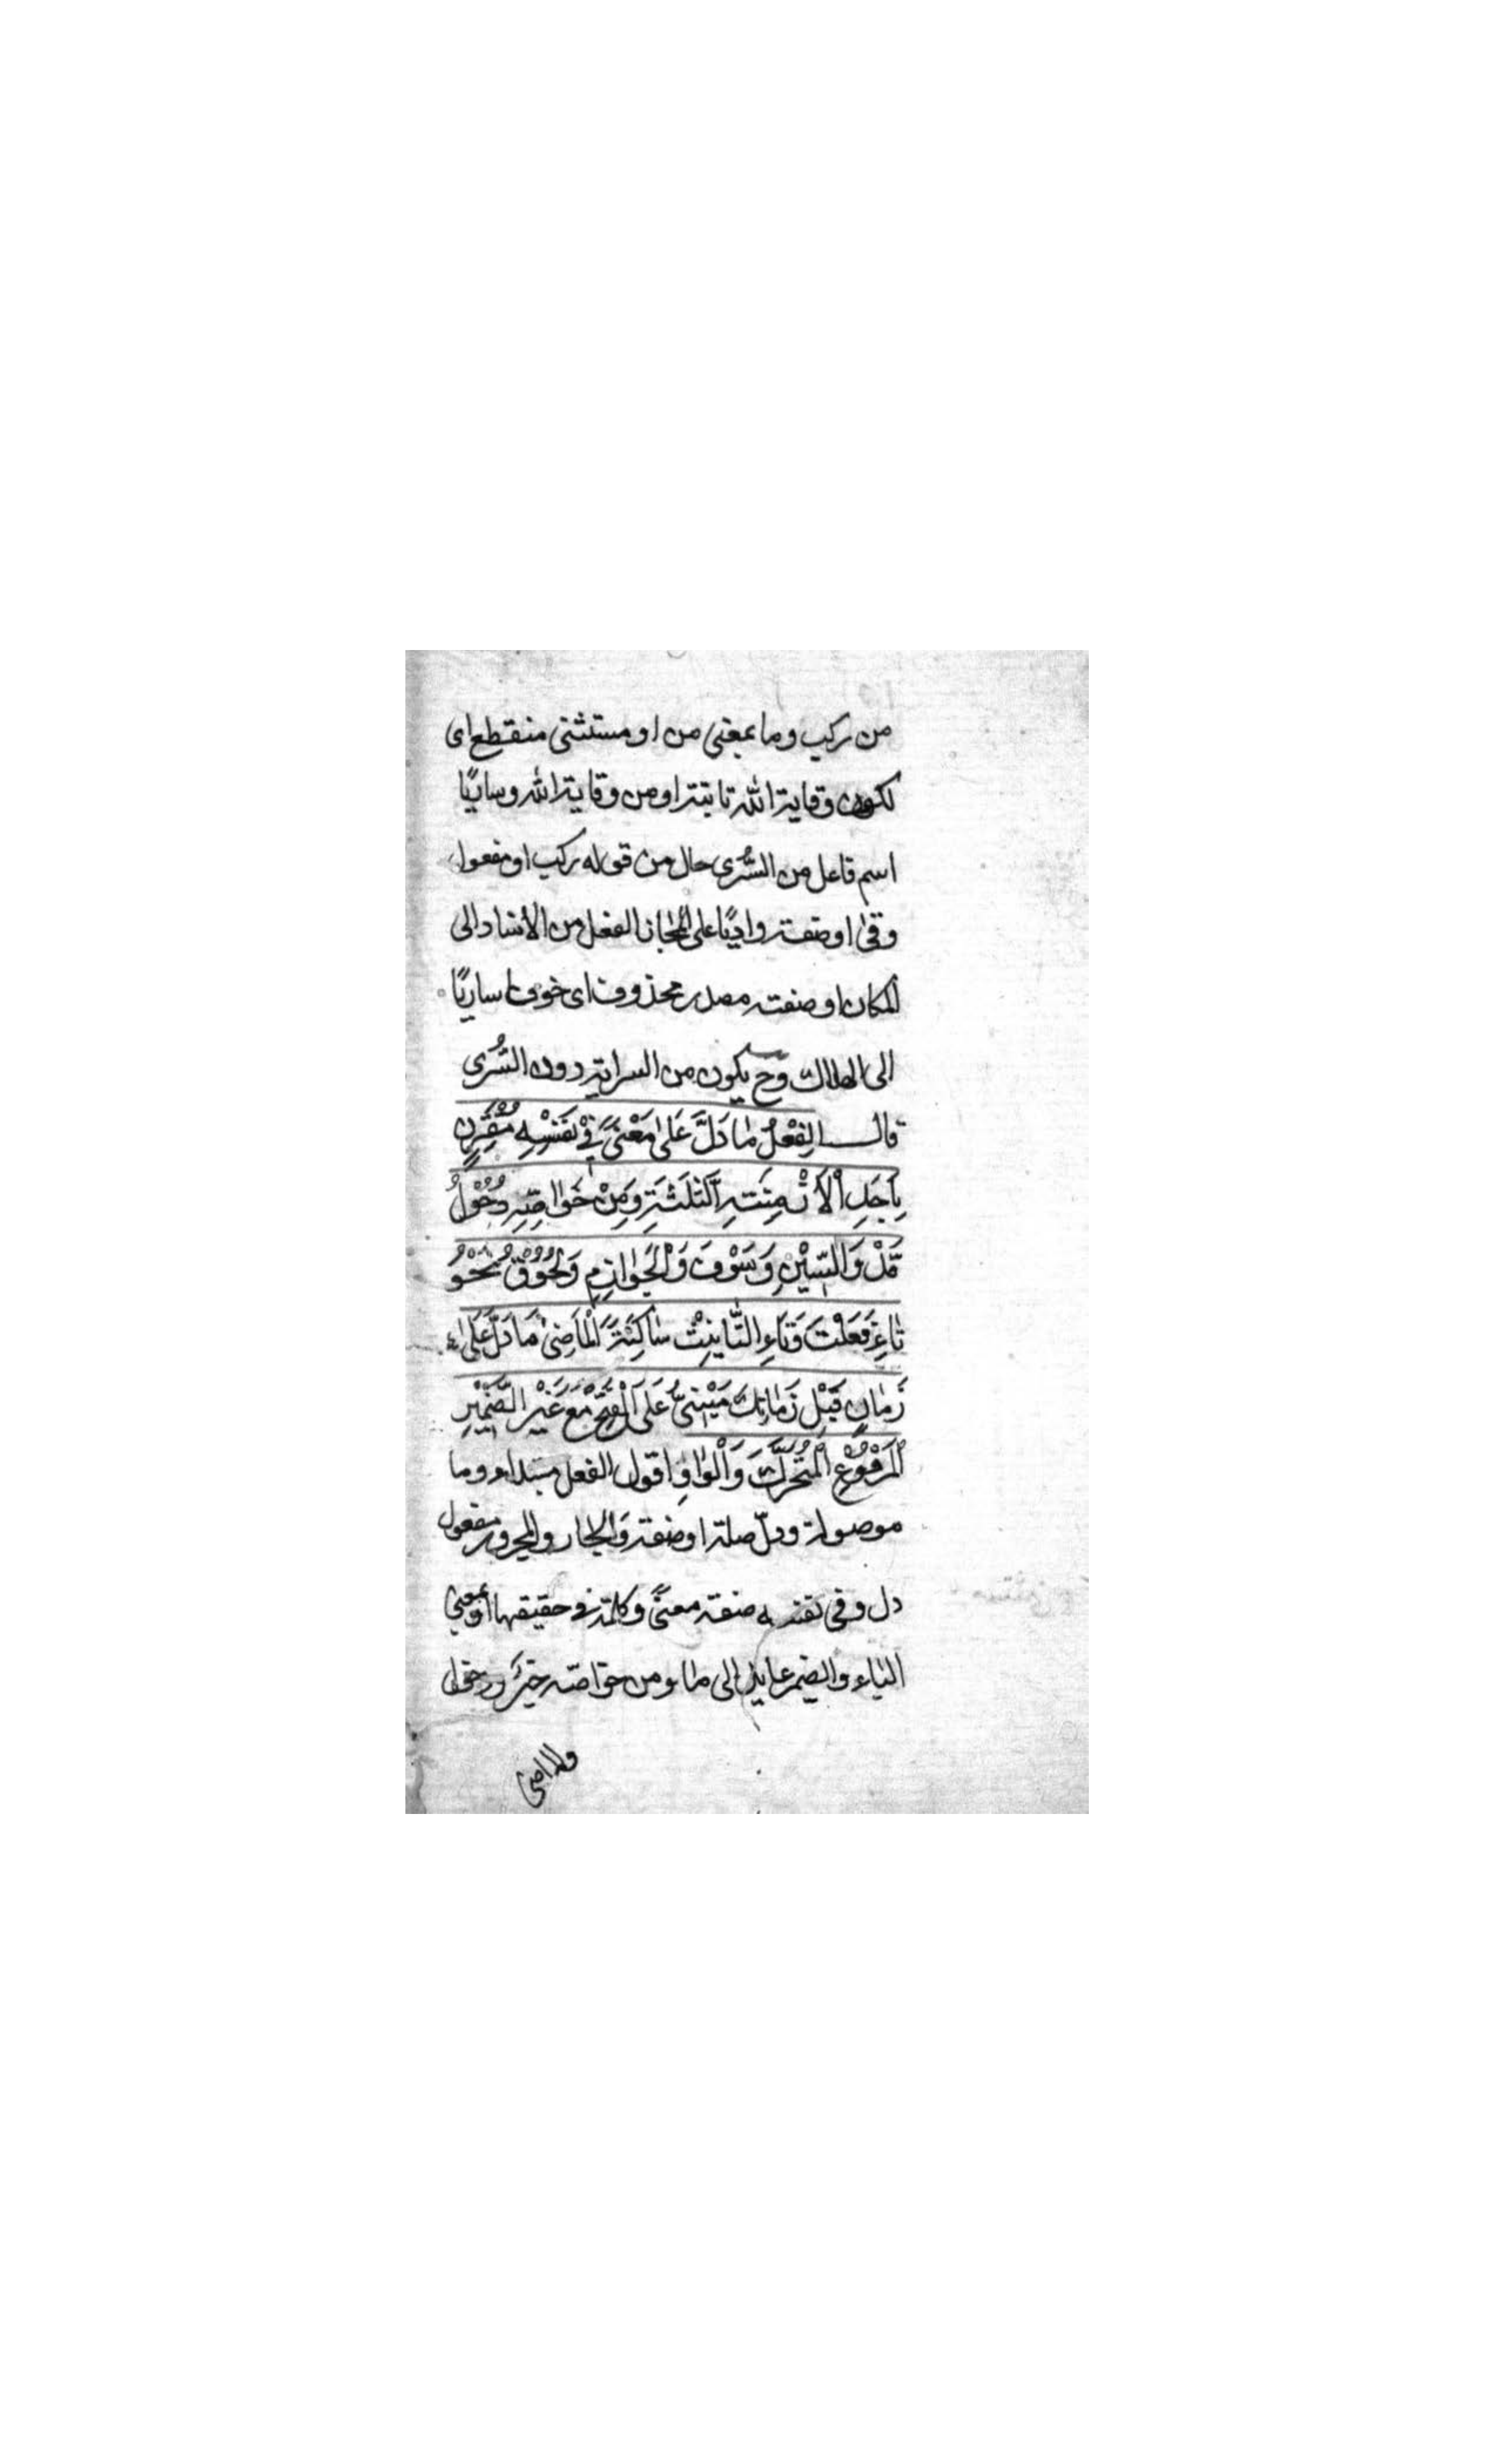 من ركب وما بمعنى من او مستثنى منقطع اى
لكون وقاية الله ثابتة او من وقاية الله وساريًا
اسم فاعل من السُّرى حال من قوله ركب او مفعول
وقى او صفة واديًا على المجاز العقل من الاسناد الى
المكان او صفة مصدر محذوف اى خوفا ساريًا
الى الهلاك وح يكون من السراية دون السُّرى
قال الفِعْلُ مٰا دَلَّ عَلىٰ مَعْنىً فِيْ نَفْسِهِ مُقْتَرِنٍ
بِاَحَدِ الْأَزْمِنَةِ الثَّلٰثَةِ وَمِنْ خَوٰاصِّهِ دُخُوْلُ
قَدْ وَالسِّيْنِ وَسَوْفَ وَالْجَوٰازِمِ وَلُحُوْقُ نَحْوُ
تٰاءِ فَعَلْتَ وَتٰاءِ التَّأنِيْثِ سٰاكِنَةً اَلْمٰاضِىْ مٰا دَلَّ عَلىٰ
زَمٰانٍ قَبْلَ زَمٰانِكَ مَبْنِىٌّ عَلَى الْفَتْحِ مَعَ غَيْرِ الضَّمِيْرِ
الْمَرْفُوْعِ الْمُتَحَرِّكِ وَالْوٰاوِ اقول الفعل مبتداء وما
موصولة ودلّ صلة او صفة وَالجار والمجرور مفعول
دل وفى نفسه صفة معنىً وكلمة فى حقيقتها او بمعنى
الباء والضمير عايد الى ما ومن خواصّه خبرٌ ودخول